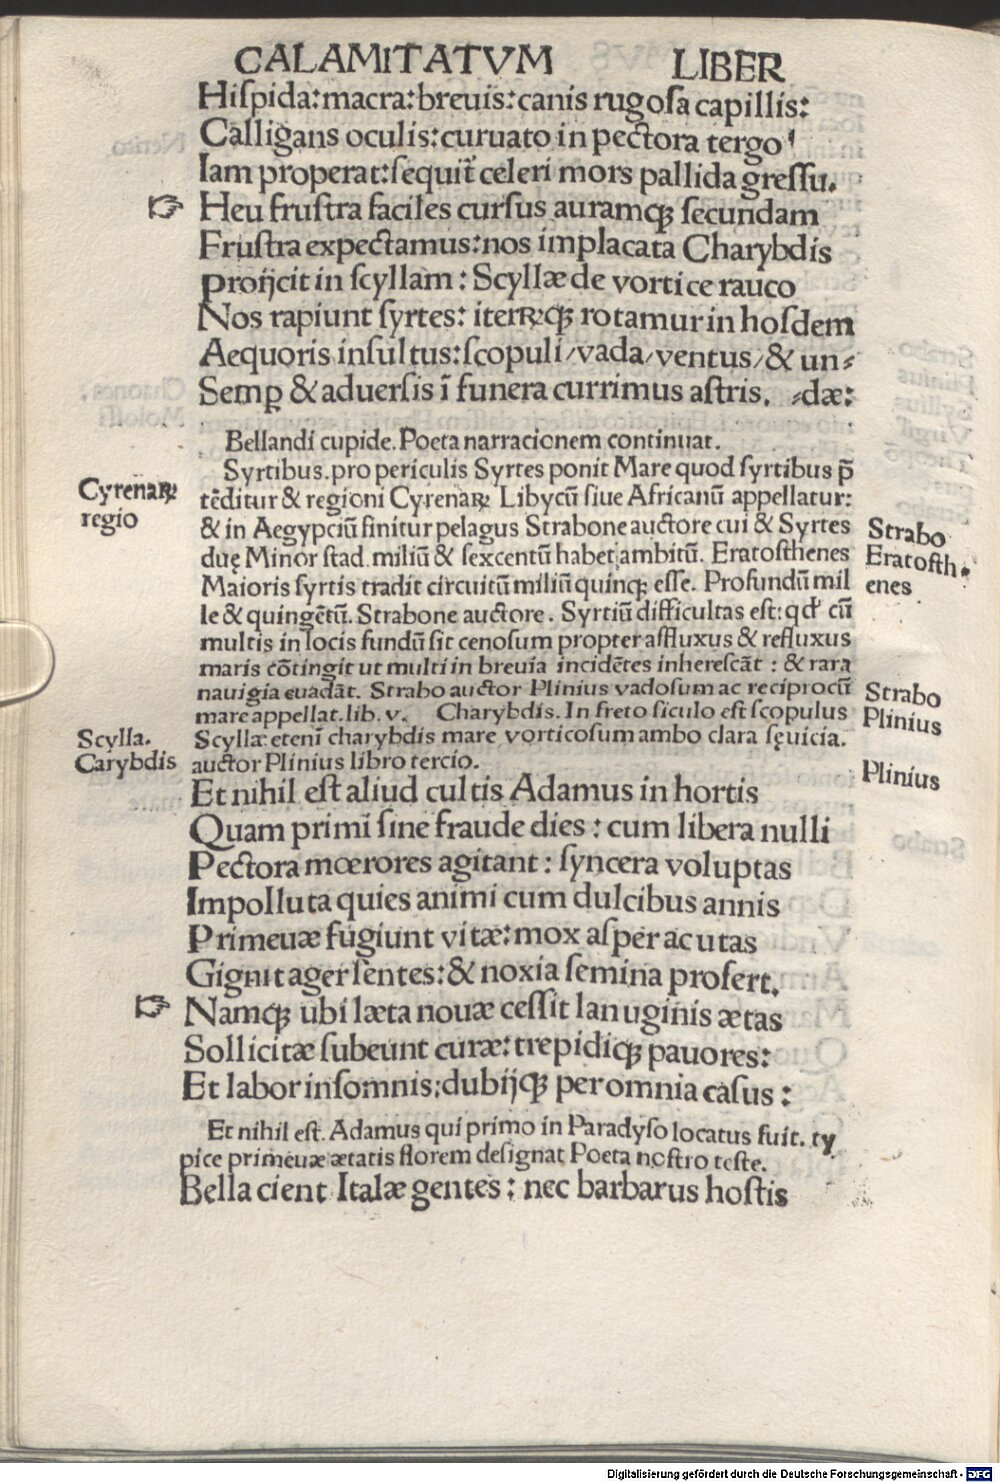 CALAMITATVM LIBER
Hiſpida:macra:breuis:canis rugoſa capillis:
Calligans oculis:curuato in pectora tergo
Iam properat:ſequit᷑ celeri mors pallida greſſu.
☞ Heu fruſtra faciles curſus auramqꝫ ſecundam
Fruſtra expectamus:nos implacata Charybdis
proijcit in ſcyllam: Scyllæ de vortice rauco
Nos rapiunt ſyrtes: iterꝝqꝫ rotamur in hoſdem
Aequoris inſultus:ſcopuli/vada/ventus/& un⸗
Semꝑ & aduerſis ī funera currimus aſtris. ⸗dæ:
Bellandi cupide. Poeta narracionem continuat.
Syrtibus. pro periculis Syrtes ponit Mare quod ſyrtibus p̄
Cyrenaꝝ
regio
tēditur & regioni Cyrenaꝝ Libycū ſiue Africanū appellatur:
& in Aegypciū finitur pelagus Strabone auctore cui & Syrtes
Strabo
duę Minor ſtad. miliū & ſexcentū habet ambitū. Eratoſthenes
Eratoſth⸗
enes
Maioris ſyrtis tradit circuitū miliū quinqꝫ eſſe. Profundū mil
le & quingētū. Strabone auctore. Syrtiū difficultas eſt: qd' cū
multis in locis fundū ſit cenoſum propter affluxus & refluxus
maris cōtingit ut multi in breuia incidētes inhereſcāt: & rara
nauigia euadāt. Strabo auctor Plinius vadoſum ac reciprocū
Strabo
Plinius
mare appellat. lib. v. Charybdis. In freto ſiculo eſt ſcopulus
Scylla.
Carybdis
Scylla: etenī charybdis mare vorticoſum ambo clara ſęuicia.
auctor Plinius libro tercio.
Plinius
Et nihil eſt aliud cultis Adamus in hortis
Quam primi ſine fraude dies: cum libera nulli
Pectora mœrores agitant: ſyncera voluptas
Impolluta quies animi cum dulcibus annis
Primeuæ fugiunt vitæ: mox aſper acutas
Gignit ager ſentes: & noxia ſemina profert.
☞ Namqꝫ ubi læta nouæ ceſſit lanuginis ætas
Sollicitæ ſubeunt curæ: trepidiqꝫ pauores:
Et labor inſomnis: dubijqꝫ per omnia caſus:
Et nihil eſt. Adamus qui primo in Paradyſo locatus fuit. ty
pice primeuæ ætatis florem deſignat Poeta noſtro teſte.
Bella cient Italæ gentes: nec barbarus hoſtis
Digitalisierung gefördert durch die Deutsche Forschungsgemeinschaft - DFG